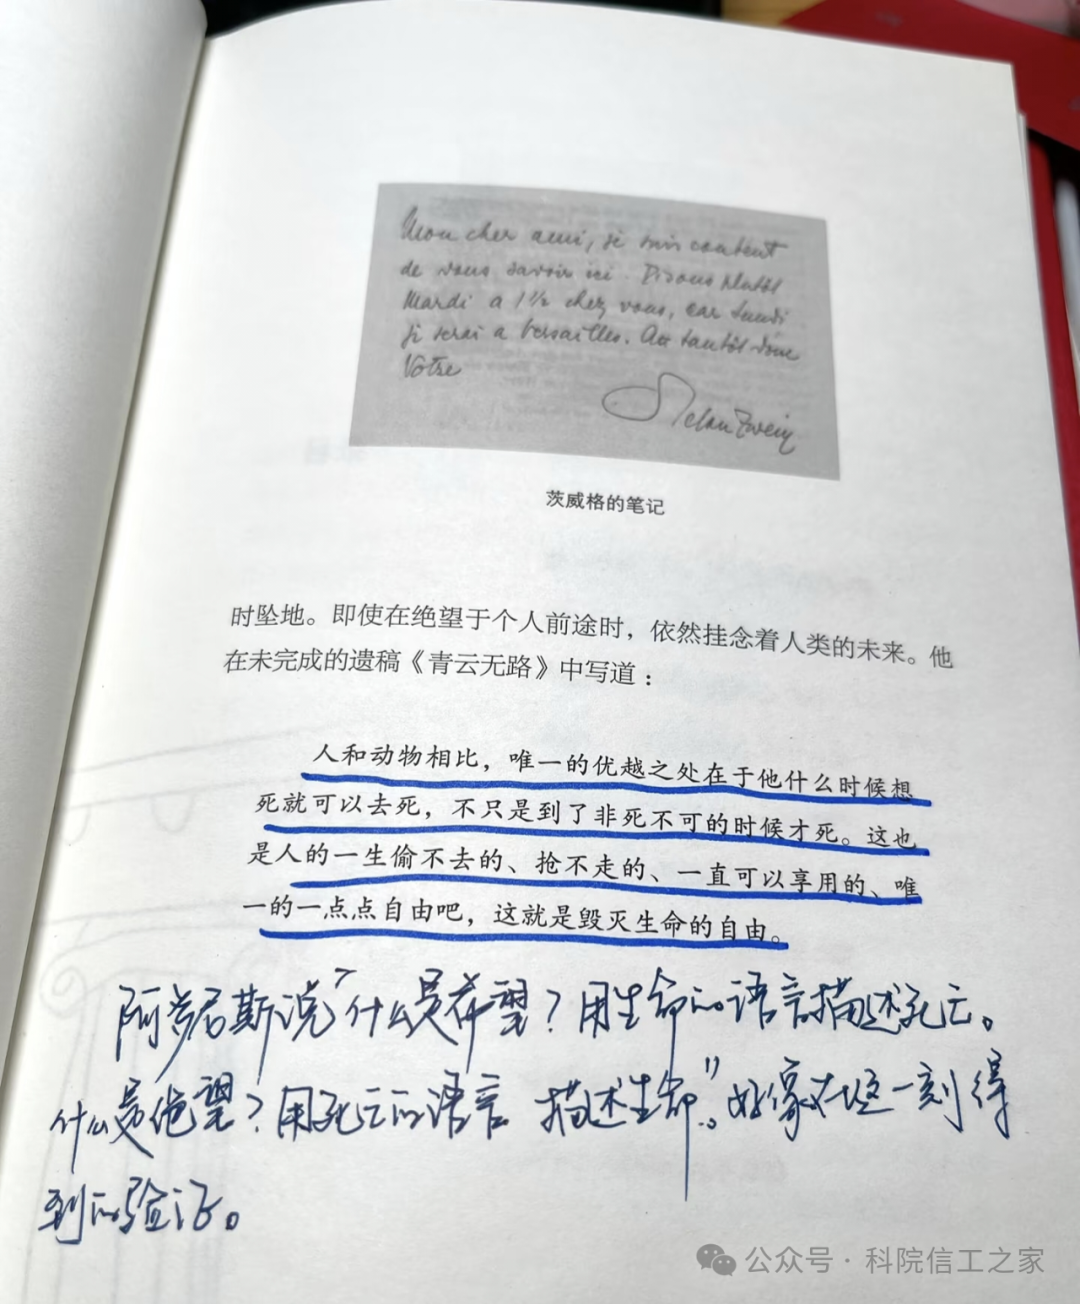 Mon cher ami, je suis content
de vous savoir ici. Disons plutôt
Mardi a 1 1/2 chez vous, car Lundi
je serai a Versailles. Au tantôt donc
Votre
Stefan Zweig
茨威格的笔记
时坠地。即使在绝望于个人前途时，依然挂念着人类的未来。他
在未完成的遗稿《青云无路》中写道：
人和动物相比，唯一的优越之处在于他什么时候想
死就可以去死，不只是到了非死不可的时候才死。这也
是人的一生偷不去的、抢不走的、一直可以享用的、唯
一的一点点自由吧，这就是毁灭生命的自由。
阿多尼斯说“什么是希望？用生命的语言描述死亡。
什么是绝望？用死亡的语言描述生命”。好像在这一刻得
到的验证。
公众号·科院信工之家